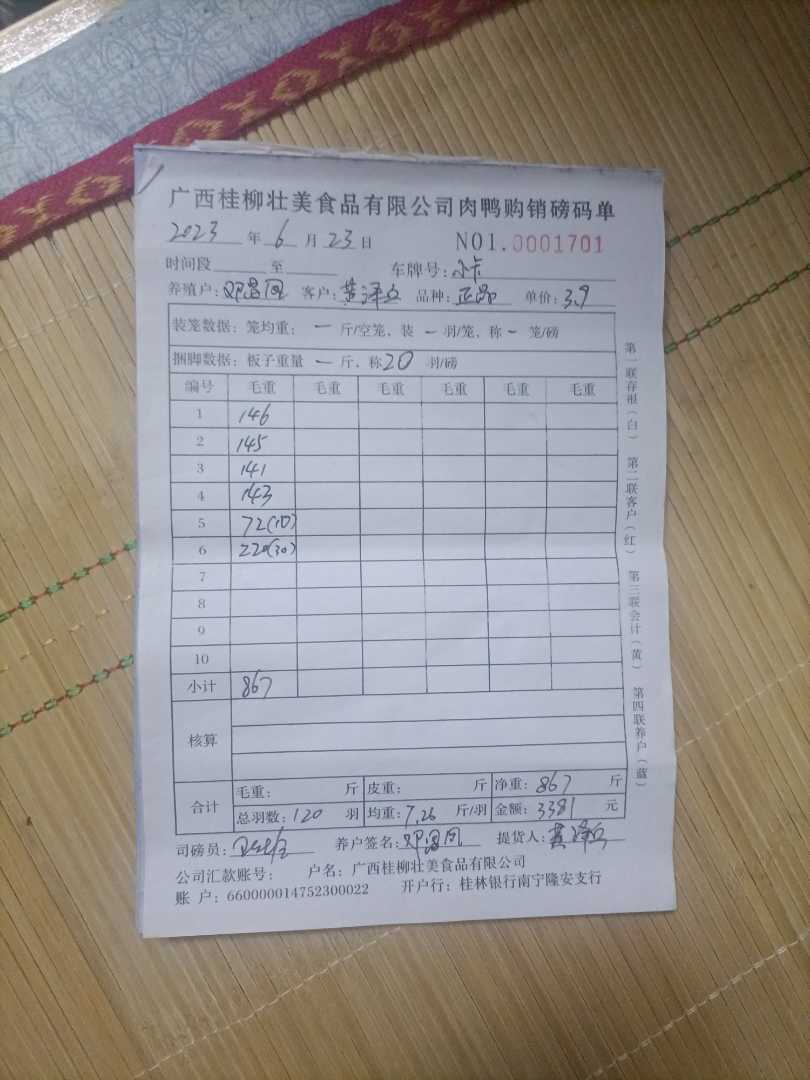 广西桂柳壮美食品有限公司肉鸭购销磅码单
2023 年 6 月 23 日 NO1.0001701
时间段 至 车牌号：小卡
养殖户： 客户：黄泽兵 品种：正品 单价：3.9
装笼数据：笼均重：一 斤/空笼、装 一 羽/笼、称 一 笼/磅
捆脚数据：板子重量 一 斤、称 20 羽/磅
编号 毛重 毛重 毛重 毛重 毛重 毛重
1 146
2 145
3 141
4 143
5 72(10)
6 220(30)
7
8
9
10
小计 867
核算
合计 毛重： 斤 皮重： 斤 净重：867 斤
总羽数：120 羽 均重：7.26 斤/羽 金额：3381 元
司磅员： 养户签名： 提货人：黄泽兵
公司汇款账号： 户名：广西桂柳壮美食品有限公司
账 户：660000014752300022 开户行：桂林银行南宁隆安支行
第一联存根（白） 第二联客户（红） 第三联会计（黄） 第四联养户（蓝）